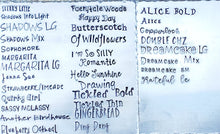 Shadows Into Light
SHADOWS LG
Shadows Mix
SOPHOMORE
MARGARITA
MARGARITA LG
Jenna Sue
Strawberry/limeade
Quirky Girl
SASSY MOLASSY
Another Birdhouse
Fairytale Woods
Happy Day
Butterscotch
Of Wildflowers
I'M SO SILLY
Romantic
Hello Sunshine
Drawing
Tickled Bold
Tickled Thin
GINGERBREAD
Ding Dong
ALICE BOLD
Alice
Copperfoot
DOUBLE CHZ
DREAMCAKE LG
Dreamcake Mix
Dreamcake SM
Grateful